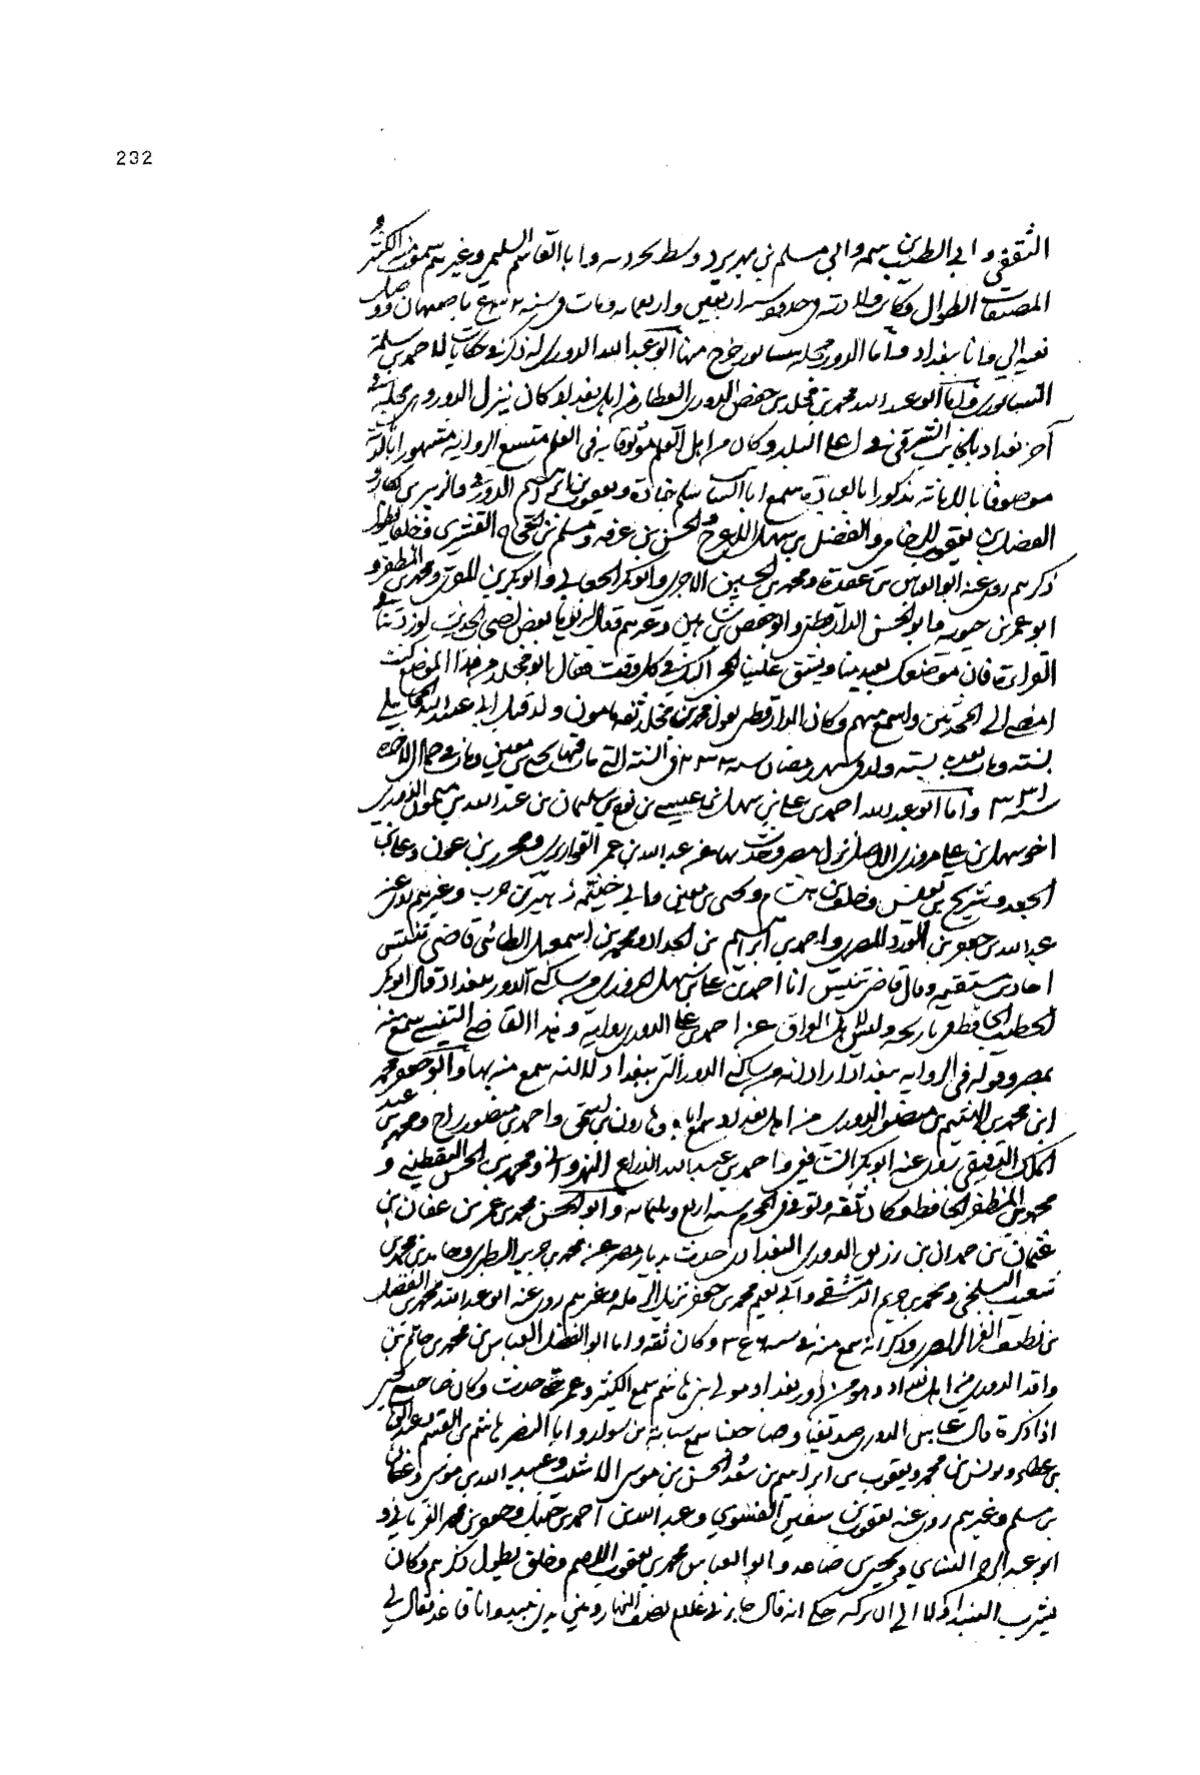 232
الثقفي و ابي الطيب بن سمه والي مسلم بن وابا القاسم السلمي وغيرهم سمع منه الكثير و
المصنفات الطوال وكانت ولادته في حدود سنة اربعين واربعمائة ومات في سنة باصبهان
ببغداد واما الدور محلة بنيسابور خرج منها ابو عبد الله الدوري له ذكر في حكايات لاحمد بن سلمة
النيسابوري واما ابو عبد الله محمد بن مخلد بن حفص الدوري العطار من اهل بغداد كان ينزل الدور وهي محلة في
آخر بغداد بالجانب الشرقي في اعلا البلد وكان من اهل الفهم موثوقا به في العلم متسع الرواية مشهورا بالديانة
موصوفا بالامانة مذكورا بالعبادة سمع ابا السائب سلم بن جنادة ويعقوب بن ابراهيم الدورقي والزبير بن بكار و
الفضل بن يعقوب الرخامي والفضل بن سهل الاعرج والحسن بن عرفه ومسلم بن الحجاج القشيري وخلقا يطول
ذكرهم روى عنه ابو العباس بن عقدة ومحمد بن الحسين الاجري وابو بكر الجعابي وابو بكر بن المقرئ ومحمد بن المظفر و
ابو عمر بن حيويه وابو الحسن الدارقطني وابو حفص بن شاهين وغيرهم فقال له يوما بعض اصحاب الحديث لو زدتنا في
القراءة فان موضعك بعيد منا ويشق علينا المجئ اليك في كل وقت فقال ابن مخلد من هذا الموضع كنت
امضي الى المحدثين واسمع منهم وكان الدارقطني يقول محمد بن مخلد ثقة مامون ولد قبل ابي عبد الله المحاملي
بسنة ومات بعده بسنة ولد في شهر رمضان سنة ٢٣٣ في السنة التي مات فيها يحيى بن معين ومات في جمادى الاخرة
سنة ٣٣١ واما ابو عبد الله احمد بن علي بن سهل بن عيسى بن نوح بن سليمان بن عبد الله بن ميمون الدوري
اخو سهل بن علي مروزي الاصل نزل مصر وحدث بها عن عبد الله بن عمر القواريري ومحرز بن عون وعلي بن
الجعد وشريح بن يونس وخلف بن هشام ويحيى بن معين وابي خيثمة زهير بن حرب وغيرهم روى عنه
عبد الله بن جعفر بن الورد المصري واحمد بن ابراهيم بن الحداد ومحمد بن اسمعيل الطائي قاضي تنيس
احاديث مستقيمة وقال قاضي تنيس انا احمد بن علي بن سهل المروزي من ساكني الدور ببغداد قال ابو بكر
الخطيب الحافظ في تاريخه وليس لاهل العراق عن احمد بن علي الدوري رواية وهذا القاضي التنيسي سمع منه
بمصر وقوله في الرواية ببغداد اراد انه من ساكني الدور التي ببغداد لا انه سمع منه بها وابو جعفر محمد
ابن محمد بن الهيثم بن منصور الدوري من اهل بغداد سمع اباه وهارون بن اسحق واحمد بن منصور زاج ومحمد بن عبد
الملك الدقيقي روى عنه ابو بكر الشافعي واحمد بن عبد الله الذراع النهرواني ومحمد بن الحسن اليقطيني و
محمد بن المظفر الحافظ وكان ثقة وتوفي في المحرم سنة اربع وثلثمائة وابو الحسن محمد بن عمر بن عفان بن
عثمان بن حمدان بن زريق الدوري البغدادي حدث بديار مصر عن محمد بن جرير الطبري وحامد بن محمد بن
شعيب البلخي ومحمد بن خريم الدمشقي وابي نعيم محمد بن جعفر نزيل الرملة وغيرهم روى عنه ابو عبد الله محمد بن الفضل
بن نظيف الفراء المصري وذكر انه سمع منه في سنة ٣٤٦ وكان ثقة واما ابو الفضل العباس بن محمد بن حاتم بن
واقد الدوري من اهل بغداد وهو من دور بغداد مولى بني هاشم سمع الكثير وعمر حتى حدث وكان
اذا ذكره قال عباس الدوري صديقنا وصاحبنا سمع شبابة بن سوار وابا النضر هاشم بن القسم وعبد الوهاب
بن عطاء ويونس بن محمد ويعقوب بن ابراهيم بن سعد والحسن بن موسى الاشيب وعبيد الله بن موسى وعفان
بن مسلم وغيرهم روى عنه يعقوب بن سفين الفسوي وعبد الله بن احمد بن حنبل وجعفر بن محمد الفريابي و
ابو عبد الرحمن النسائي ويحيى بن صاعد وابو العباس محمد بن يعقوب الاصم وخلق يطول ذكرهم وكان
يشرب النبيذ اولا الى ان تركه حكي انه قال جاءني غلام نصف النهار وبين يدي نبيذ وانا قاعد فقال لي